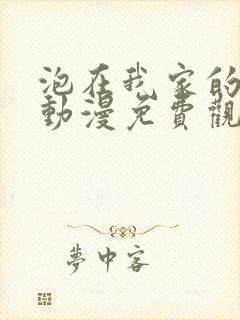 泡在我家的
動漫免費觀
夢中客